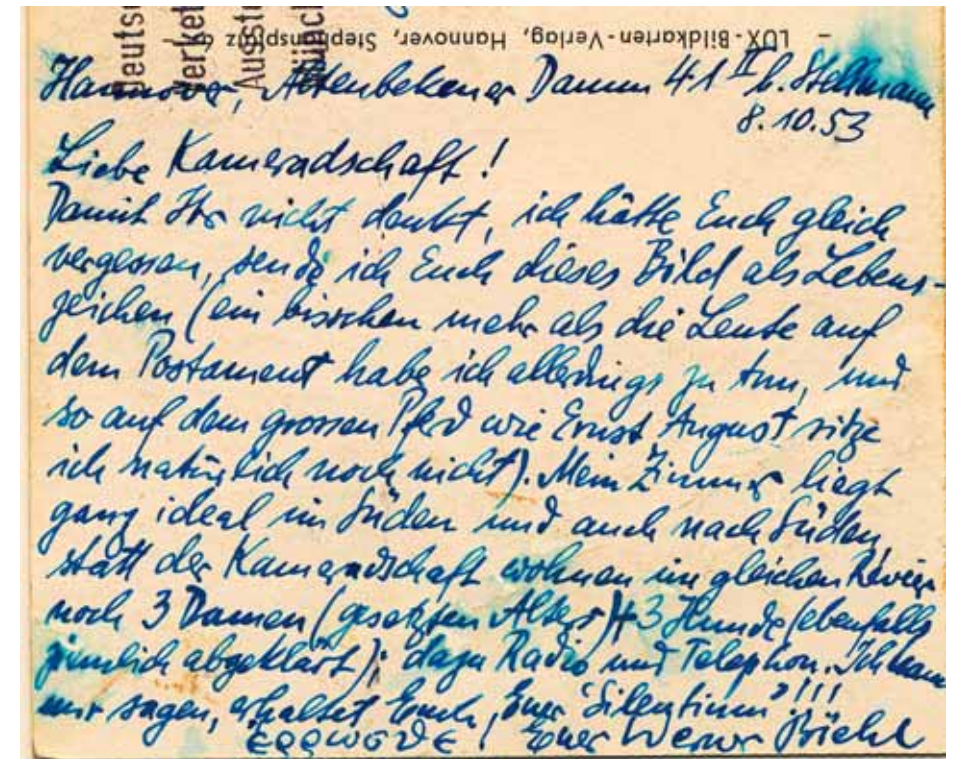 Deutsc
Verket
Ausste
Münch
- LUX-Bildkarten-Verlag, Hannover, Stephansplatz 6
Hannover, Altenbekener Damm 41 II b. Stellmann
8.10.53
Liebe Kameradschaft!
Damit Ihr nicht denkt, ich hätte Euch gleich
vergessen, sende ich Euch dieses Bild als Lebens-
zeichen (ein bisschen mehr als die Leute auf
dem Postament habe ich allerdings zu tun, und
so auf dem grossen Pferd wie Ernst August sitze
ich natürlich noch nicht). Mein Zimmer liegt
ganz ideal im Süden und auch nach Süden,
statt der Kameradschaft wohnen im gleichen Revier
noch 3 Damen (gesetzten Alters) + 3 Hunde (ebenfalls
ziemlich abgeklärt); dazu Radio und Telephon. Ich kann
nur sagen, erhaltet Euch Euer "Silentium"!!!
ἔρρωσθε! Euer Werner